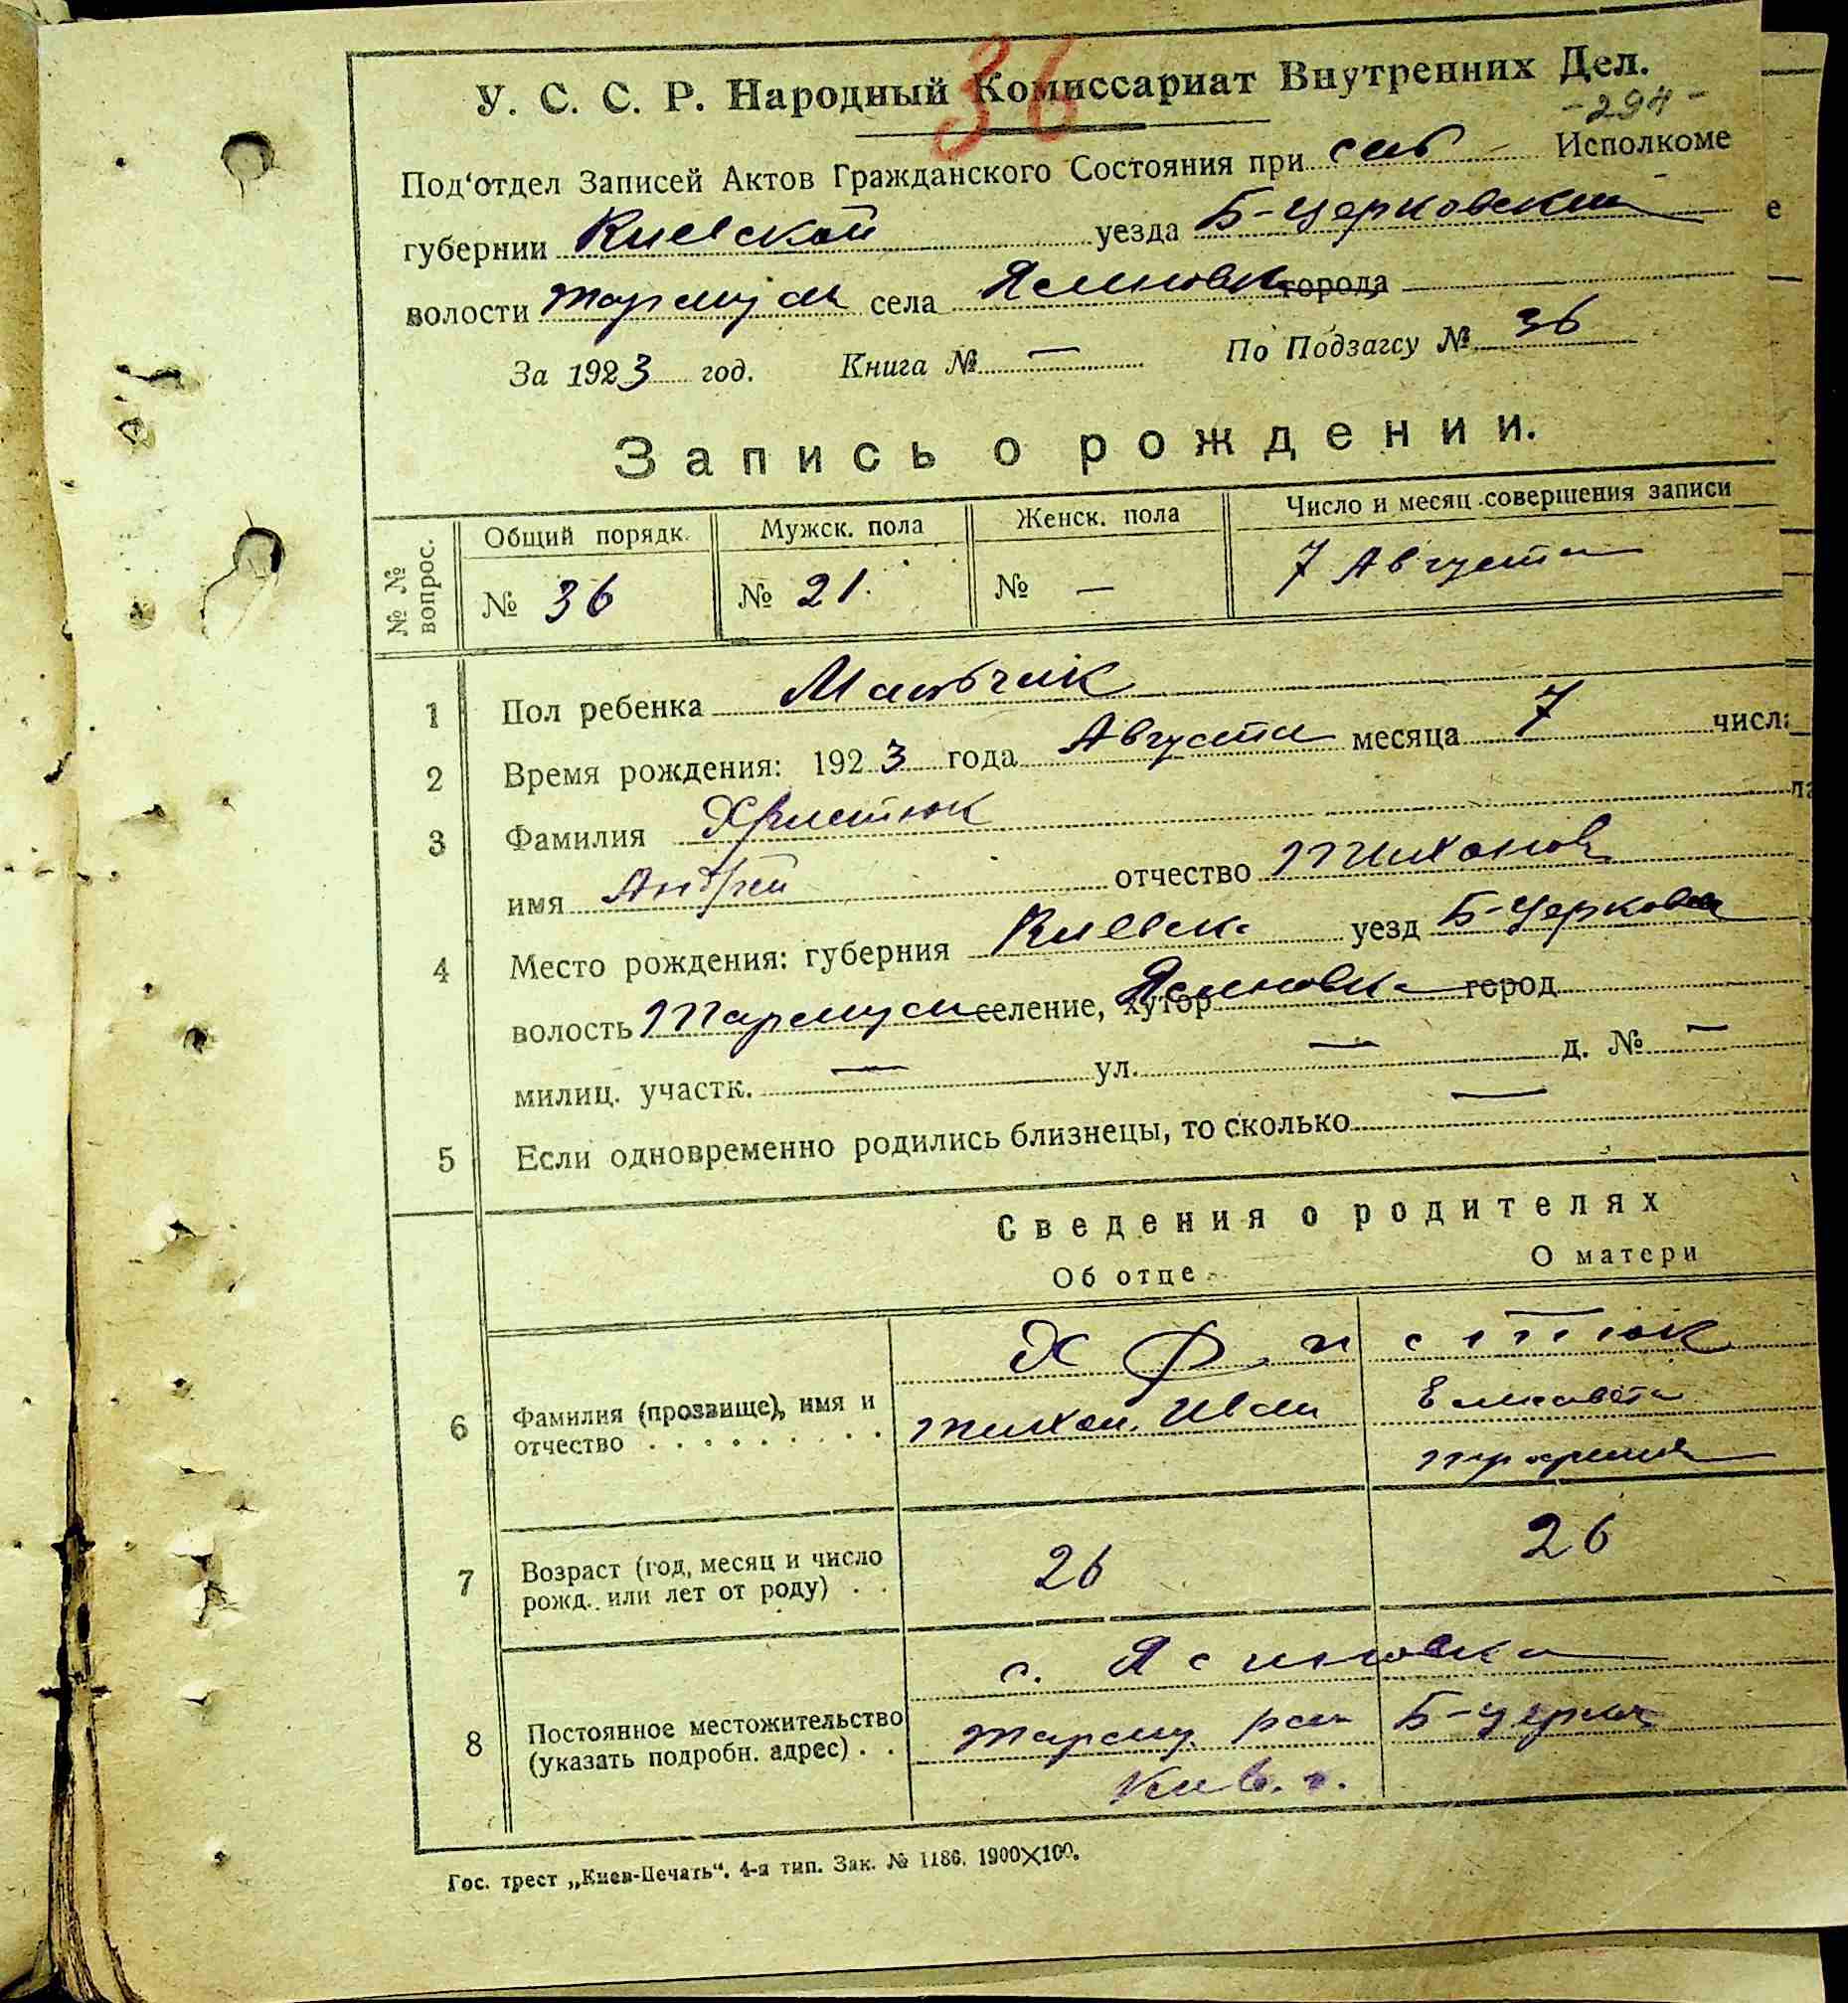 36
У. С. С. Р. Народный Комиссариат Внутренних Дел.
- 294 -
Под‘отдел Записей Актов Гражданского Состояния при Исполкоме
губернии Киевской уезда Б-Церковский
волости села Ясиновк города
За 1923 год. Книга № — По Подзагсу № 36
Запись о рождении.
№ № вопрос. Общий порядк. Мужск. пола Женск. пола Число и месяц совершения записи
№ 36 № 21. № — 7 Августа
1 Пол ребенка Мальчик
2 Время рождения: 1923 года Августа месяца 7 числ
3 Фамилия Христюк
имя Андрей отчество Тихонов
4 Место рождения: губерния Киевск. уезд Б-Церковск
волость селение, хутор Ясиновка город
милиц. участк. — ул. — д. № —
5 Если одновременно родились близнецы, то сколько —
Сведения о родителях
Об отце О матери
Христюк
6 Фамилия (прозвище), имя и отчество . . . . . . . . . Тихон. Иван Елисавета
7 Возраст (год, месяц и число рожд. или лет от роду) . . 26 26
с. Ясиновка
8 Постоянное местожительство (указать подробн. адрес) . . Б-Церк
Киев. г.
Гос. трест „Киев-Печать“. 4-я тип. Зак. № 1186. 1900×100.